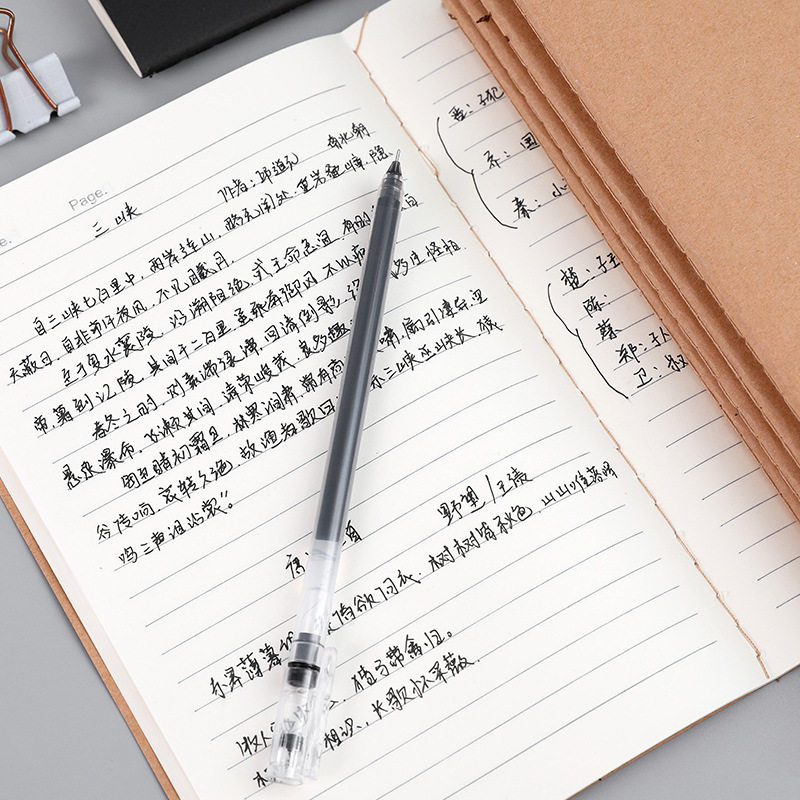 Page.
三峡 作者:郦道元 南北朝
自三峡七百里中,两岸连山,略无阙处。重岩叠嶂,隐
天蔽日,自非亭午夜分,不见曦月。
至于夏水襄陵,沿溯阻绝。或王命急宣,有时 白
帝,暮到江陵,其间千二百里,虽乘奔御风,不以疾
春冬之时,则素湍绿潭,回清倒影, 多生怪柏
悬泉瀑布,飞漱其间,清荣峻茂,良多趣
每至晴初霜旦,林寒涧肃,常有高 啸,属引凄异,空
谷传响,哀转久绝。故渔者歌曰 东三峡巫峡长,猿
鸣三声泪沾裳”。
野望/王绩
树树皆秋色,山山唯落晖
猎马带禽归。
相识,长歌怀采薇。
晋:子犯
齐:国
秦:小
楚:子玉
陈
蔡
郑:
卫: